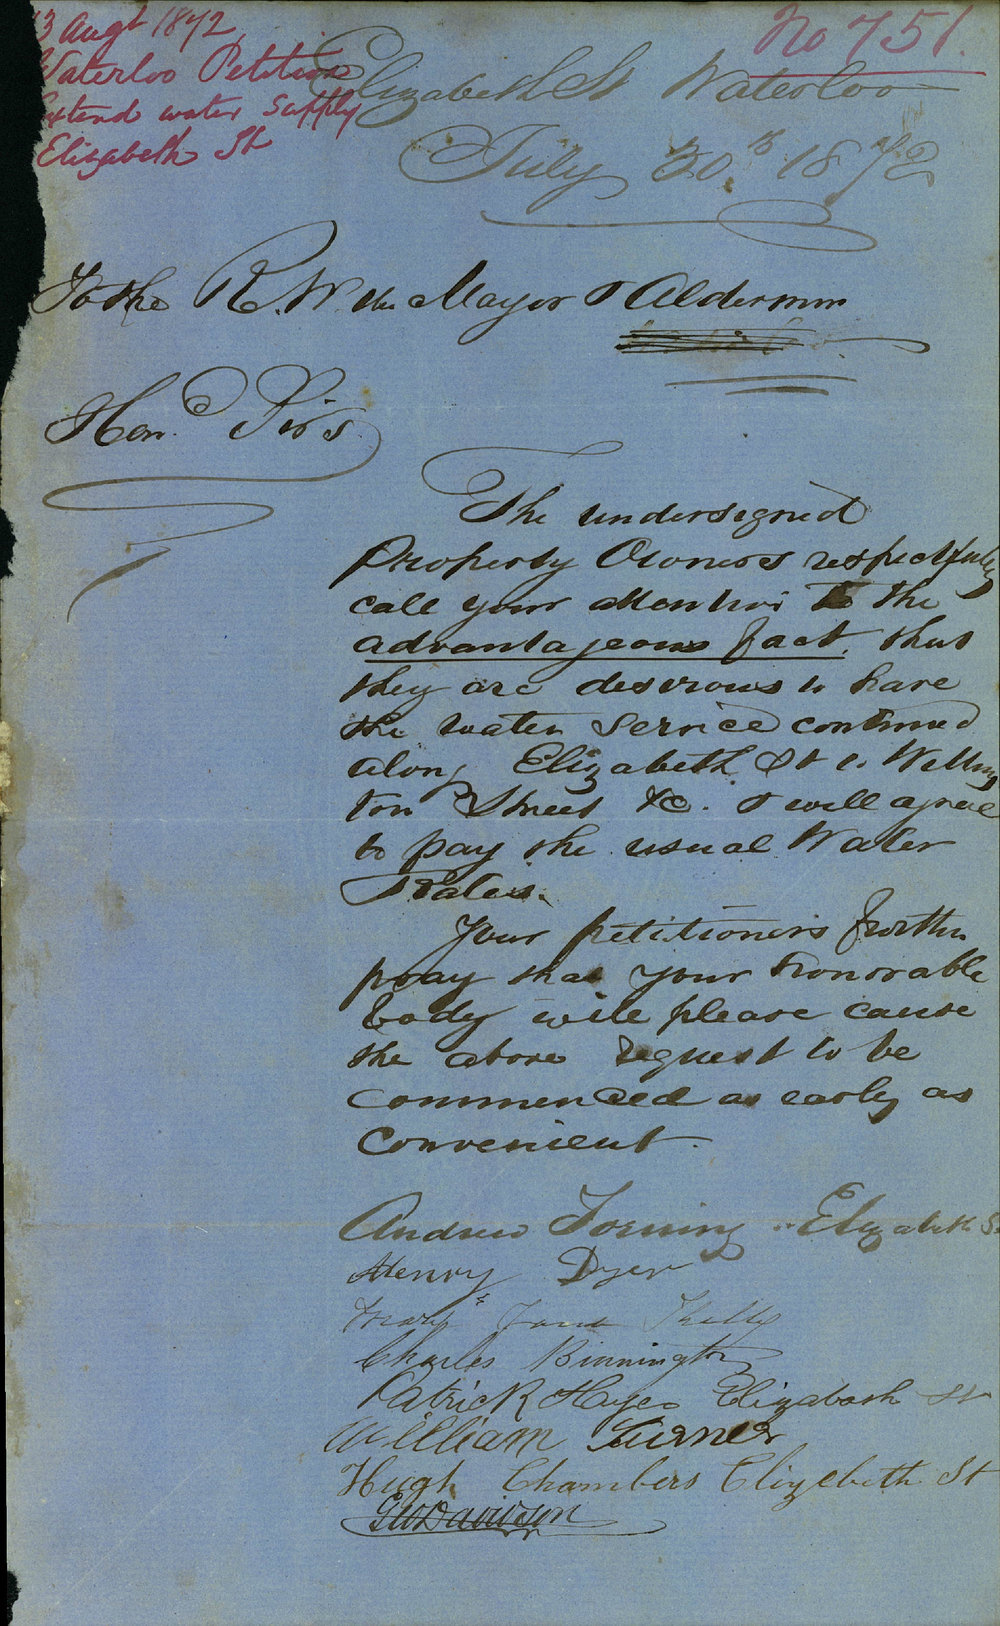 3 Augt 1872
Waterloo Petition
extend water supply
Elizabeth St
No 751.
Elizabeth St Waterloo
July 30th 1872
To the R. W. the Mayor & Aldermen
Hond. Sirs
The undersigned
Property Owners respectfully
call your attention to the
advantageous fact, that
they are desirous to have
the water service continued
along Elizabeth St to Welling
ton Street &c. & will agree
to pay the usual Water
Rates.
Your petitioners further
pray that your honorable
body will please cause
the above request to be
commenced as early as
convenient.
Andrew Torning Elizabeth St
Henry Dyer
Mary Jane Kelly
Charles Binnington
Patrick Hayes Elizabeth St
William Turner
Hugh Chambers Elizebeth St
Geo Davidson